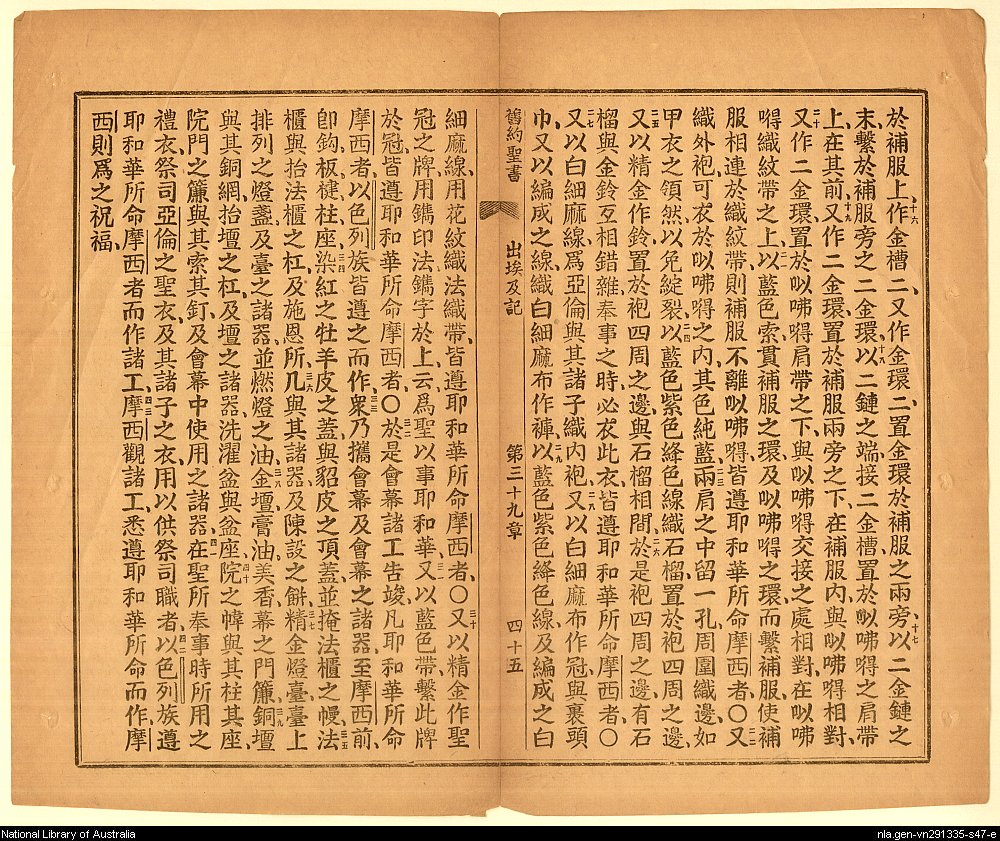 於補服上十六作金槽、二又作金環、二置金環於補服之兩旁、十七以二金鏈之
末、繫於補服旁之二金環、十八以二鏈之端、接二金槽、置於㕥咈嘚之肩帶
上、在其前、十九又作二金環、置於補服兩旁之下、在補服內、與㕥咈嘚相對、
二十又作二金環、置於㕥咈嘚肩帶之下、與㕥咈嘚交接之處相對、在㕥咈
嘚織紋帶之上、二一以藍色索貫補服之環、及㕥咈嘚之環、而繫補服、使補
服相連於織紋帶、則補服不離㕥咈嘚、皆遵耶和華所命摩西者、〇二二又
織外袍可衣於㕥咈嘚之內、其色純藍、二三兩肩之中留一孔、周圍織邊、如
甲衣之領然、以免綻裂、二四以藍色紫色絳色線織石榴、置於袍四周之邊、
二五又以精金作鈴、置於袍四周之邊、與石榴相間、二六於是袍四周之邊、有石
榴與金鈴、互相錯雜、奉事之時、必衣此衣、皆遵耶和華所命摩西者、〇
二七又以白細麻線爲亞倫與其諸子織內袍、二八又以白細麻布作冠、與裹頭
巾、又以編成之線織白細麻布作褲、二九以藍色紫色絳色線、及編成之白
舊約聖書 出埃及記 第三十九章 四十五
細麻線、用花紋織法織帶、皆遵耶和華所命摩西者、〇三十又以精金作聖
冠之牌、用鐫印法鐫字於上、云爲聖以事耶和華、三一又以藍色帶繫此牌
於冠、皆遵耶和華所命摩西者、〇三二於是會幕諸工告竣、凡耶和華所命
摩西者、以色列族皆遵之而作、三三衆乃攜會幕及會幕之諸器、至摩西前、
卽鈎、板、楗、柱、座、三四染紅之牡羊皮之蓋、與貂皮之頂蓋、並掩法櫃之幔、三五法
櫃與抬法櫃之杠、及施恩所、三六几與其諸器、及陳設之餅、三七精金燈臺、臺上
排列之燈盞、及臺之諸器、並燃燈之油、三八金壇、膏油、美香、幕之門簾、三九銅壇
與其銅網、抬壇之杠、及壇之諸器、洗濯盆與盆座、四十院之幃、與其柱其座、
院門之簾、與其索其釘、及會幕中使用之諸器、四一在聖所奉事時所用之
禮衣、祭司亞倫之聖衣、及其諸子之衣、用以供祭司職者、四二以色列族遵
耶和華所命摩西者而作諸工、四三摩西觀諸工、悉遵耶和華所命而作、摩
西則爲之祝福、
National Library of Australia
nla.gen-vn291335-s47-e